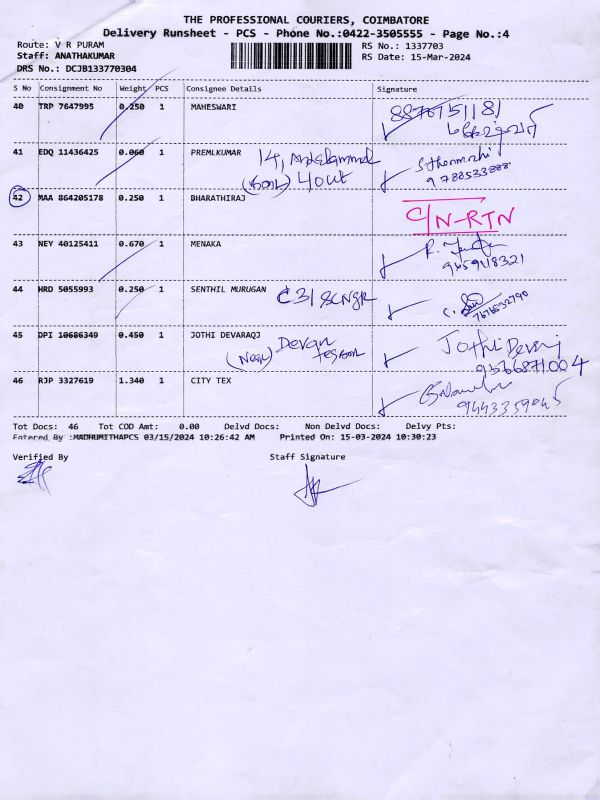 THE PROFESSIONAL COURIERS, COIMBATORE
Delivery Runsheet - PCS - Phone No.:0422-3505555 - Page No.:4
Route: V R PURAM
RS No.: 1337703
Staff: ANATHAKUMAR
RS Date: 15-Mar-2024
DRS No.: DCJB133770304
S No Consignment No Weight PCS Consignee Details Signature
40 TRP 7647995 0.250 1 MAHESWARI
41 EDQ 11436425 0.060 1 PREMLKUMAR 14,
9788533888
42 MAA 864205178 0.250 1 BHARATHIRAJ C/N-RTN
43 NEY 40125411 0.670 1 MENAKA
9659118321
44 HRD 5055993 0.250 1 SENTHIL MURUGAN C31 SCNGR
7676532790
45 DPI 10686349 0.450 1 JOTHI DEVARAQJ Devan Jothi Devaj
(Near) 9566871004
46 RJP 3327619 1.340 1 CITY TEX
9443359045
Tot Docs: 46 Tot COD Amt: 0.00 Delvd Docs: Non Delvd Docs: Delvy Pts:
Entered By :MADHUMITHAPCS 03/15/2024 10:26:42 AM Printed On: 15-03-2024 10:30:23
Verified By Staff Signature